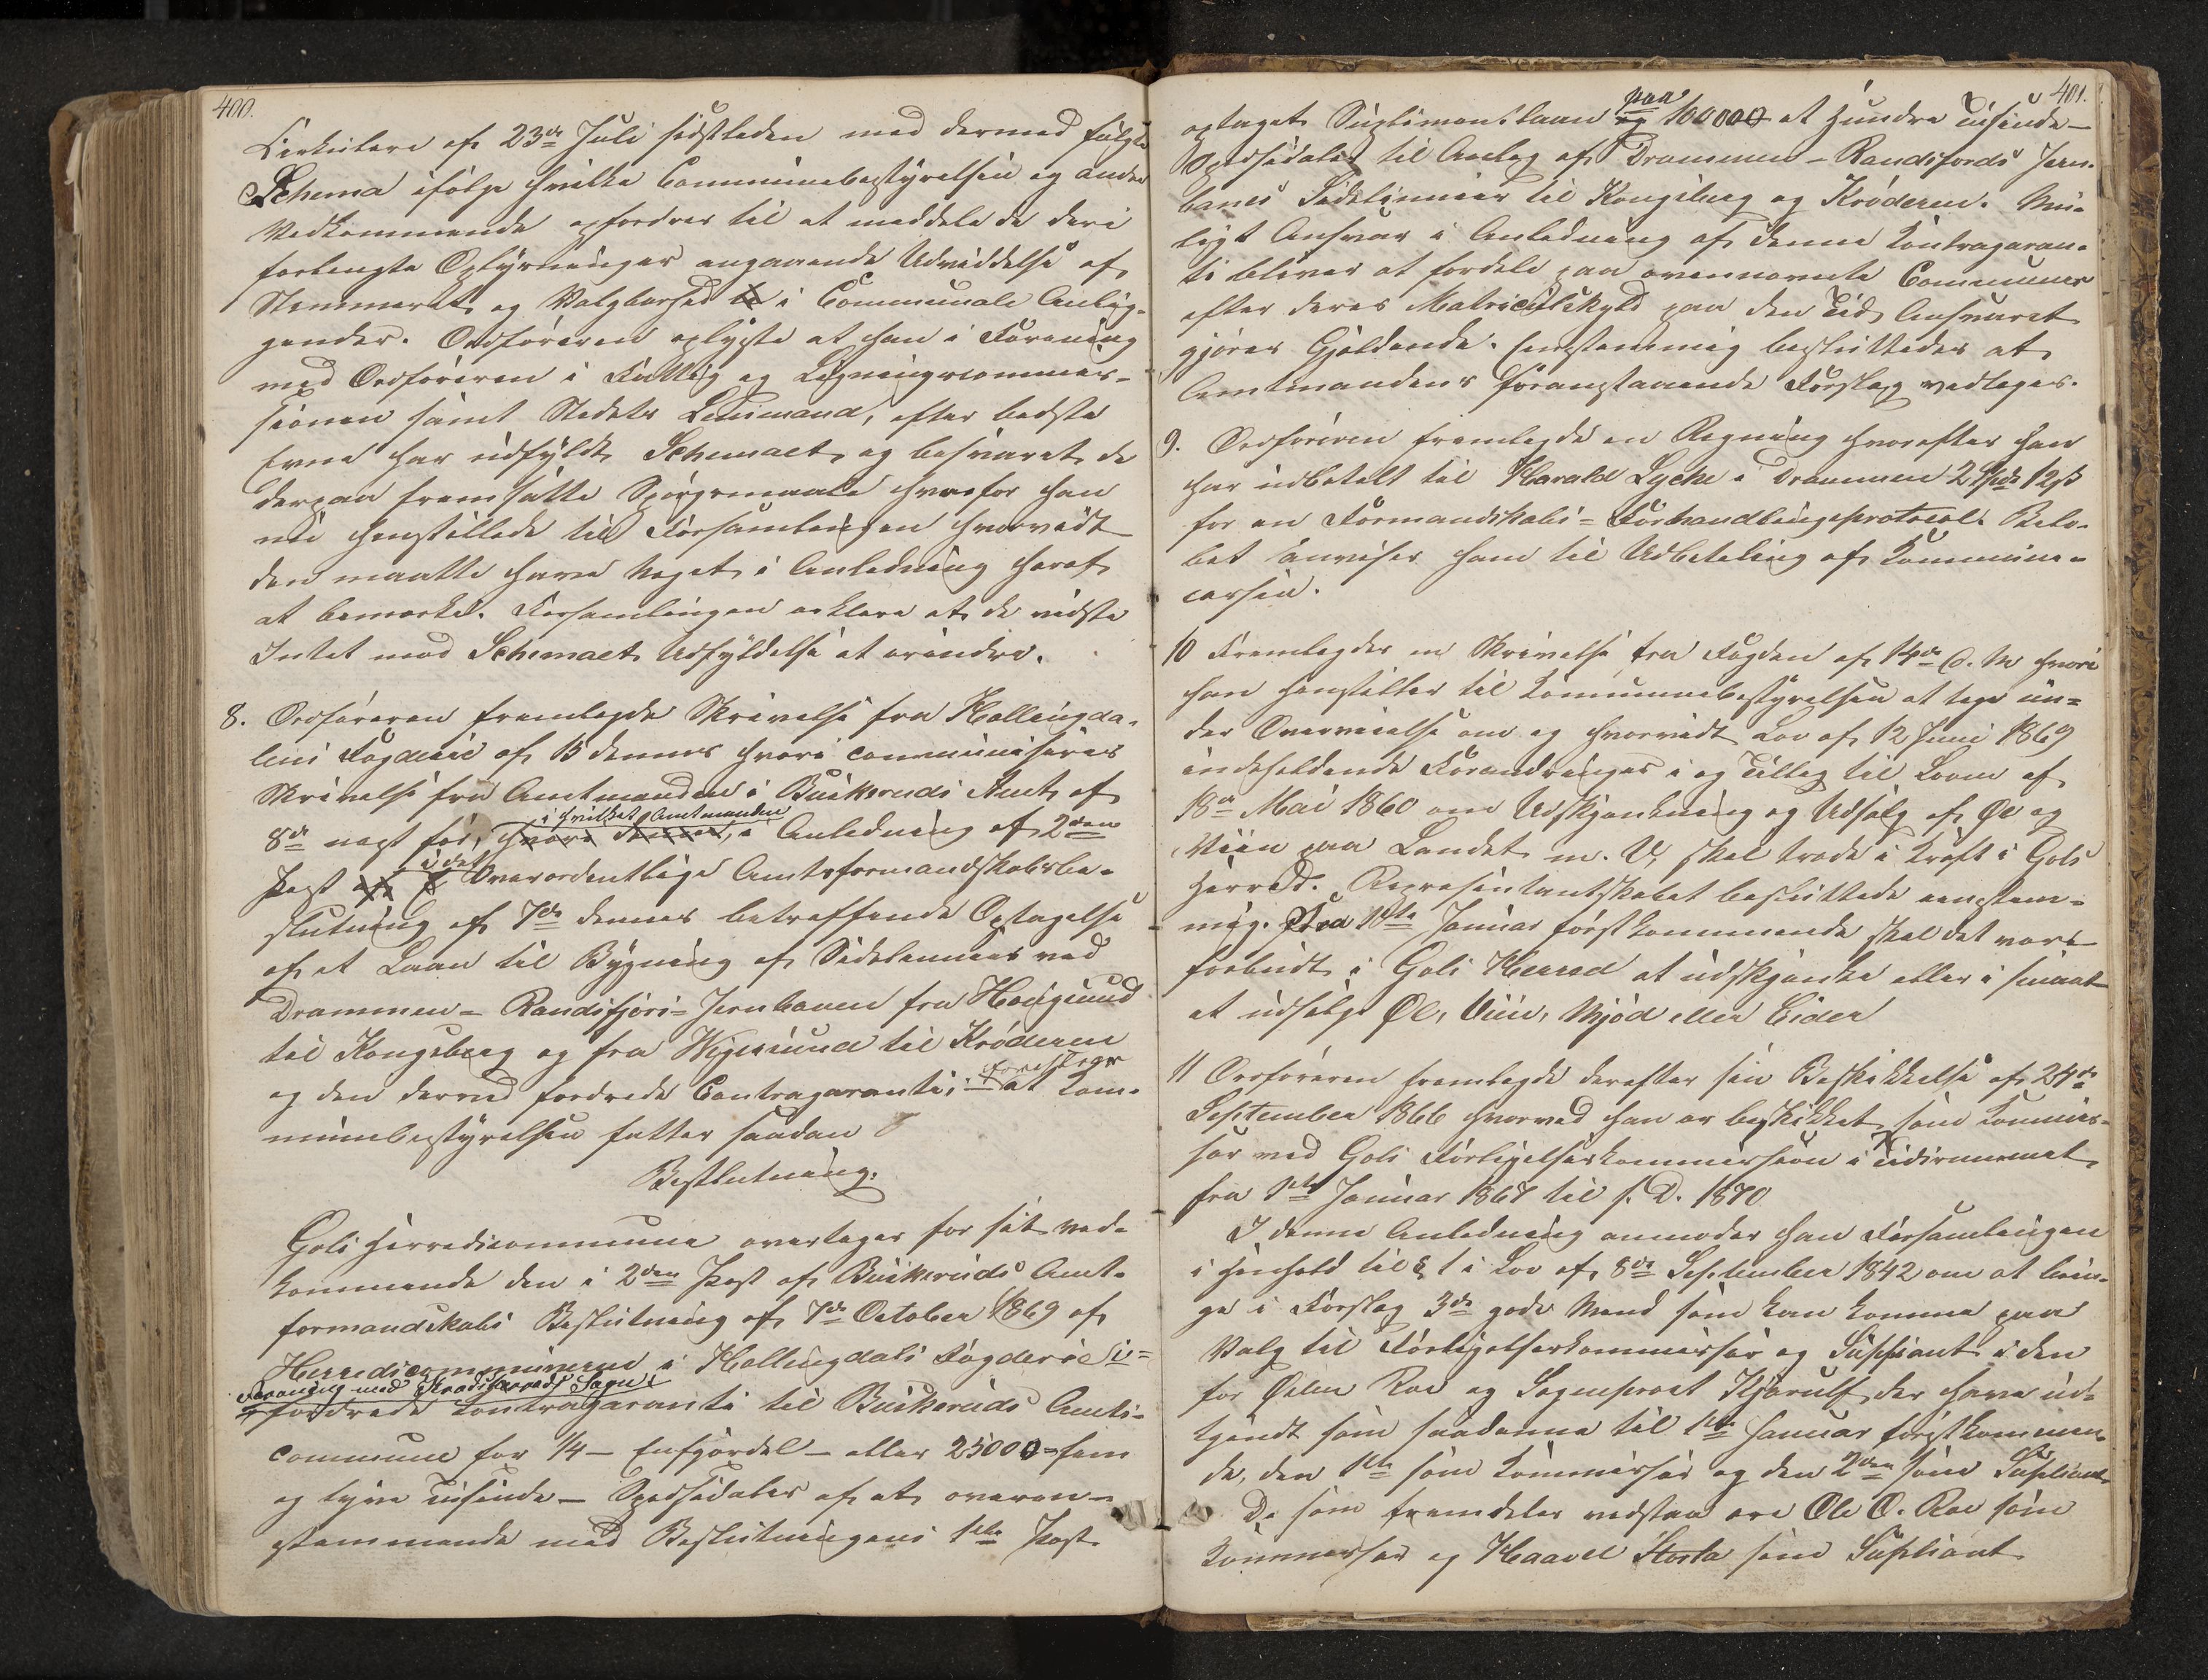 400.
Cirkulære af 23de Juli sidstleden med dermed fulgte
Schema ifølge hvilke Communebestyrelsen og andre
Vedkommende opfordres til at meddele de deri
forlangte Oplysninger angaaende Udviddelse af
Stemmeret og Valgbarhed i Communale Anlig-
gender. Ordføreren oplyste at han i Forening
med Ordføreren i Fattig og Ligningscommis-
sionen samt Stedets Lensmand, efter bedste
Evne har udfyldt Schemaet og besvaret de
derpaa fremsatte Spørgsmaale hvorfor han
nu henstillede til Forsamlingen hvorvidt
den maatte have Noget i Anledning heraf
at bemærke. Forsamlingen erklære at de vidste
Intet mod Schemaets Udfyldelse at erindre.
8. Ordføreren fremlegde Skrivelse fra Hallingda-
lens Fogderie af 15 dennes hvori communiseres
Skrivelse fra Amtmanden i Buskeruds Amt af
i hvilket Amtmanden
8de næst før, hvori denne, i Anledning af 2den
i det
Post af Overordentlige Amtsformandskabsbe-
slutning af 7de dennes betræffende Optagelse
af et Laan til Bygning af Sidelinnier ved
Drammen- Randsfjors- Jernbanen fra Hougsund
til Kongsberg og fra Wigersund til Krøderen
foreslaar
og den derved fordrede Contragaranti; at Kom-
munebestyrelsen fatter saadan
Beslutning.
Gols Herredscommune overtager for sit ved-
kommende den i 2den Post af Buskeruds Amt-
formandskabs Beslutning af 7de October 1869 af
Herredscommunerne i Hallingdals Fogderie i-
Forening med Krødsherreds Sogn
fordrede Contragaranti til Buskeruds Amts-
commune for 1/4 - Enfjerdel - eller 25000 - fem
og tyve tusinde - Speciedaler af et overen-
stemmende med Beslutningens 1ste Post
401.
paa
optaget Suplimentlaan og 100000 et Hundre tusinde-
Speciedaler til Anleg af Drammen - Randsfjords Jern-
banes Sidelinnier til Kongsberg og Krøderen. Mu-
ligt Ansvar i Anledning af denne Kontragaran-
ti bliver at fordele paa ovennevnte Communer
efter deres Matriculskyld paa den Tid Ansvaret
gjøres Gjældende. Eenstemmig besluttedes at
Amtmandens foranstaaende Forslag vedtages.
9. Ordføreren fremlegde en Regning hvorefter han
har udbetalt til Harald Lyche i Drammen 2 Spd 12 ß
for en Formandskabs-Forhandlingsprotocol. Belø-
bet anvises ham til Udbetaling af Kommune-
cassen.
10 Fremlegdes en Skrivelse fra Fogden af 14de d. M hvori
han henstiller til Kommunebestyrelsen at tage un-
der Overveielse om og hvorvidt Lov af 12 Juni 1869
indeholdende Forandringer i og Tilleg til Loven af
18de Mai 1860 om Udskjenkning og Udsalg af Øl og
Viin paa Landet m. V. skal træde i Kraft i Gols
Herred. Repræsentantskabet besluttede eenstem-
mig. Fra 1ste Januar førstkommende skal det være
forbudt i Gols Herred at udskjænke eller i smaat
at udsælge Øl, Viin, Mjød eller Cider
11 Ordføreren fremlegde derefter sin Beskikkelse af 24de
September 1866 hvorved han er beskikket som Kommis-
sær ved Gols Forligelseskommission i Tidsrummet
fra 1ste Januar 1867 til s. D. 1870
I denne Anledning anmoder han Forsamlingen
i Henhold til § 1 i Lov af 8de September 1842 om at brin-
ge i Forslag 3de gode Mænd som kan komme paa
Valg til Forligelseskommissær og Supliant i den
for Ordf. Roe og Sogneprest Kjerulf, der have ud-
tjendt som saadanne til 1ste Januar førstkommen-
de, den 1ste som Kommissær og den 2den som Supliant
De som fremdeles vedstaa ere Ole O. Roe som
Kommissær og Haavel Storla som Supliant